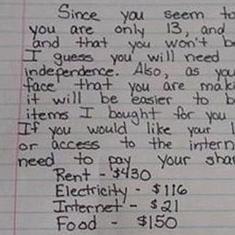 Since you seem to
you are only 13, and
and that you won't b
I guess you will need
independence. Also, as you
face that you are mak
it will be easier to b
items I bought for you
If you would like your l
or access to the intern
need to pay your shar
Rent - $430
Electricity - $116
Internet - $21
Food - $150